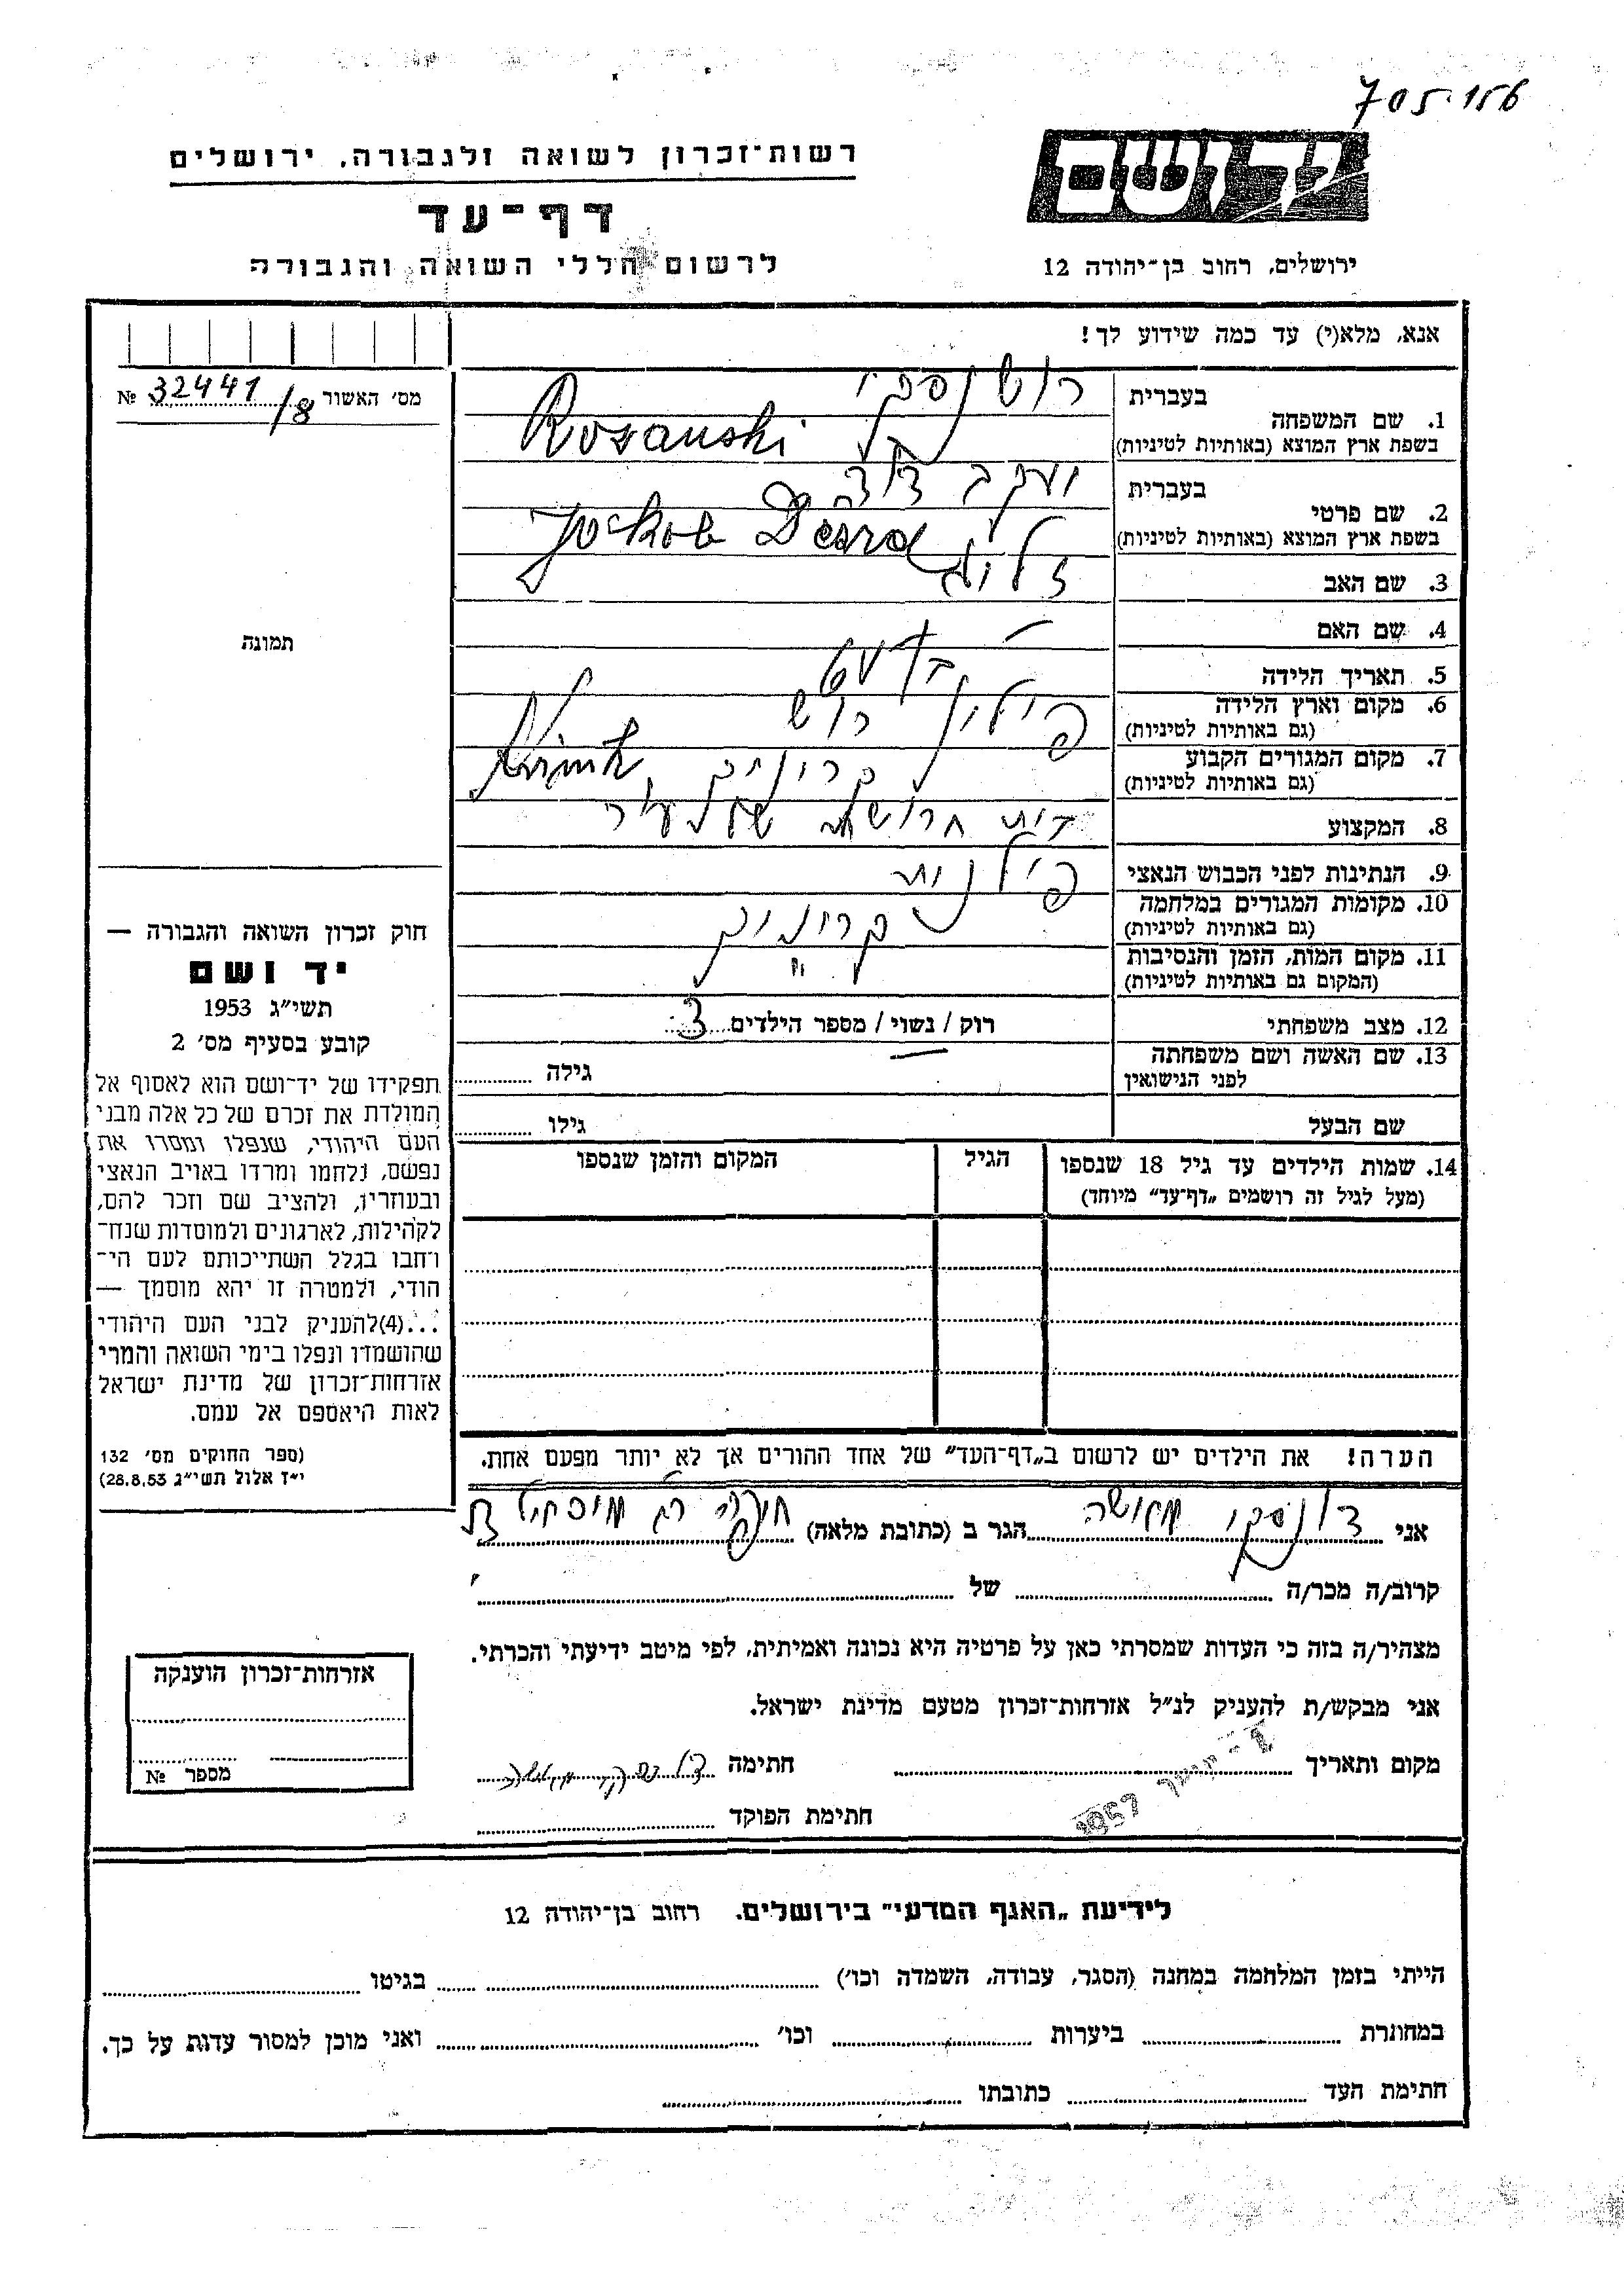 705.156
יד ושם
רשות־זכרון לשואה ולגבורה, ירושלים
דף־עד
לרשום חללי השואה והגבורה
ירושלים, רחוב בן־יהודה 12
אנא, מלא(י) עד כמה שידוע לך!
מס׳ האשור 32441/8 №
1. שם המשפחה
בעברית
בשפת ארץ המוצא (באותיות לטיניות) Rozanski
2. שם פרטי
בעברית יעקב
בשפת ארץ המוצא (באותיות לטיניות)
3. שם האב זליג
4. שם האם —
5. תאריך הלידה
6. מקום וארץ הלידה
(גם באותיות לטיניות) פילין
7. מקום המגורים הקבוע
(גם באותיות לטיניות) קריניק Krinik
8. המקצוע בית חרושת
9. הנתינות לפני הכבוש הנאצי פולנית
10. מקומות המגורים במלחמה
(גם באותיות לטיניות) קריניק
11. מקום המות, הזמן והנסיבות
(המקום גם באותיות לטיניות) "
12. מצב משפחתי רוק / נשוי / מספר הילדים 3
13. שם האשה ושם משפחתה
לפני הנישואין
גילה
שם הבעל
גילו
14. שמות הילדים עד גיל 18 שנספו
(מעל לגיל זה רושמים „דף־עד״ מיוחד)
הגיל
המקום והזמן שנספו
הערה! את הילדים יש לרשום ב„דף־העד״ של אחד ההורים אך לא יותר מפעם אחת.
תמונה
חוק זכרון השואה והגבורה —
יד ושם
תשי״ג 1953
קובע בסעיף מס׳ 2
תפקידו של יד־ושם הוא לאסוף אל
המולדת את זכרם של כל אלה מבני
העם היהודי, שנפלו ומסרו את
נפשם, נלחמו ומרדו באויב הנאצי
ובעוזריו, ולהציב שם וזכר להם,
לקהילות, לארגונים ולמוסדות שנח־
רבו בגלל השתייכותם לעם הי־
הודי, ולמטרה זו יהא מוסמך —
...(4)להעניק לבני העם היהודי
שהושמדו ונפלו בימי השואה והמרי
אזרחות־זכרון של מדינת ישראל
לאות היאספם אל עמם.
(ספר החוקים מס׳ 132
י״ז אלול תשי״ג 28.8.53)
אני הגר ב (כתובת מלאה)
קרוב/ה מכר/ה של
מצהיר/ה בזה כי העדות שמסרתי כאן על פרטיה היא נכונה ואמיתית, לפי מיטב ידיעתי והכרתי.
אני מבקש/ת להעניק לנ״ל אזרחות־זכרון מטעם מדינת ישראל.
מקום ותאריך חתימה
חתימת הפוקד
אזרחות־זכרון הוענקה
מספר №
לידיעת „האגף המדעי״ בירושלים. רחוב בן־יהודה 12
הייתי בזמן המלחמה במחנה (הסגר, עבודה, השמדה וכו׳) בגיטו
במחתרת ביערות וכו׳ ואני מוכן למסור עדות על כך.
חתימת העד כתובתו